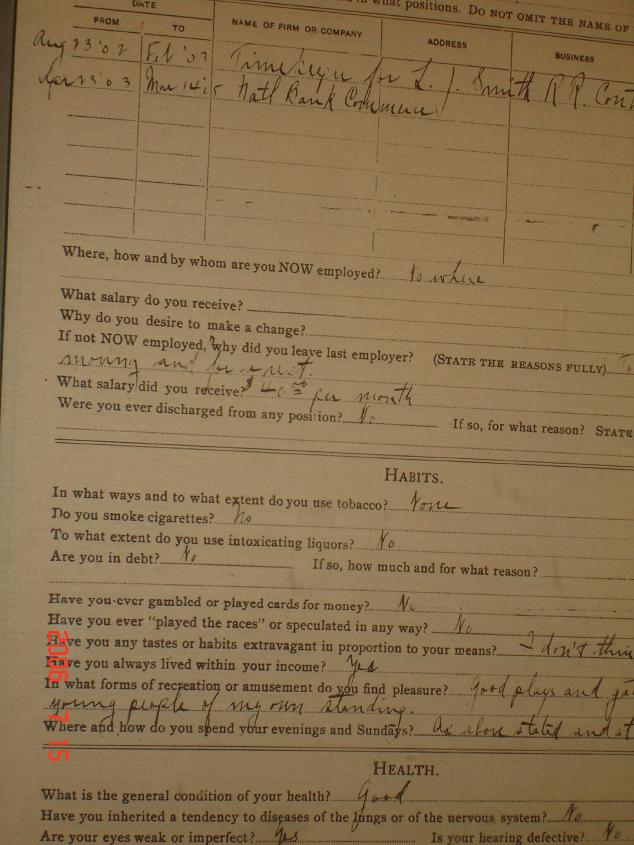 in what positions. DO NOT OMIT THE NAME OF
DATE
FROM TO NAME OF FIRM OR COMPANY ADDRESS BUSINESS
Aug 23 '02 Feb '03 Timekeeper for L. J. Smith R R. Cont
Apr 23 '03 Mar 14 '05 Natl Bank Commerce
Where, how and by whom are you NOW employed? No where
What salary do you receive?
Why do you desire to make a change?
If not NOW employed, why did you leave last employer? (STATE THE REASONS FULLY) To
and for a rest.
What salary did you receive? $ 40 00 per month
Were you ever discharged from any position? No If so, for what reason? STATE
HABITS.
In what ways and to what extent do you use tobacco? None
Do you smoke cigarettes? No
To what extent do you use intoxicating liquors? No
Are you in debt? No If so, how much and for what reason?
Have you ever gambled or played cards for money? No
Have you ever "played the races" or speculated in any way? No
Have you any tastes or habits extravagant in proportion to your means? I don't thin
Have you always lived within your income? Yes
In what forms of recreation or amusement do you find pleasure? Good plays and
young people of my own standing.
Where and how do you spend your evenings and Sundays? As above stated and at
HEALTH.
What is the general condition of your health? Good
Have you inherited a tendency to diseases of the lungs or of the nervous system? No
Are your eyes weak or imperfect? Yes Is your hearing defective? No
2006 7 15